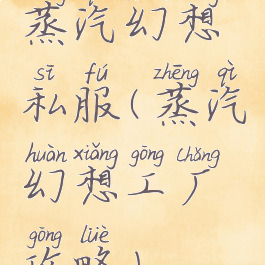 蒸汽幻想
sī fú zhēng qì
私服(蒸汽
huàn xiǎng gōng chǎng
幻想工厂
gōng lüè
攻略)